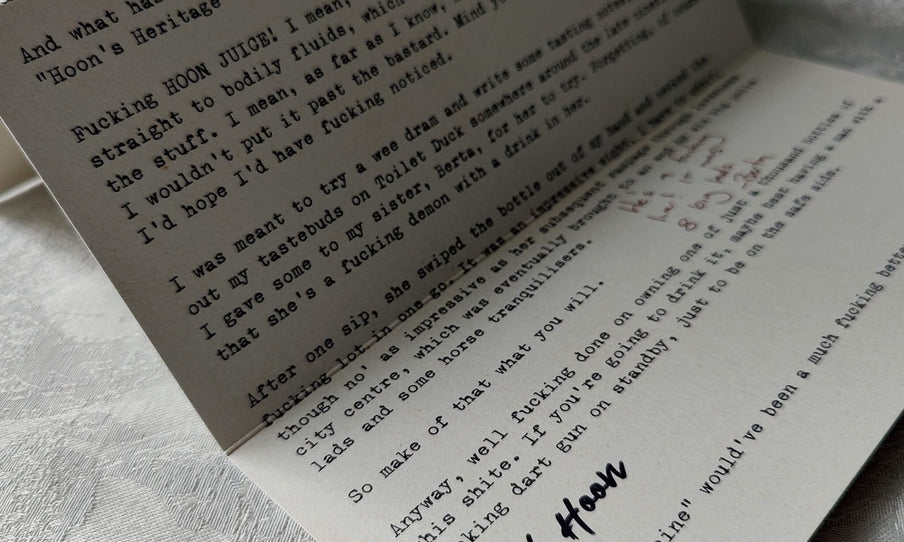 And what has
"Hoon's Heritage
Fucking HOON JUICE! I mean,
straight to bodily fluids, which
the stuff. I mean, as far as I know,
I wouldn't put it past the bastard. Mind
I'd hope I'd have fucking noticed.
I was meant to try a wee dram and write some tasting notes,
out my tastebuds on Toilet Duck somewhere around the late
I gave some to my sister, Berta, for her to try. Forgetting, of
that she's a fucking demon with a drink in her.
After one sip, she swiped the bottle out of my hand and
fucking lot in one go. It was an impressive
though no' as impressive as her subsequent rampage through
city centre, which was eventually brought to an end by
lads and some horse tranquilisers.
He's a
liar! It was
8 big lads
Berta
So make of that what you will.
Anyway, well fucking done on owning one of just a thousand bottles of
this shite. If you're going to drink it, maybe best having a man with a
king dart gun on standby, just to be on the safe side.
Hoon
ine" would've been a much fucking